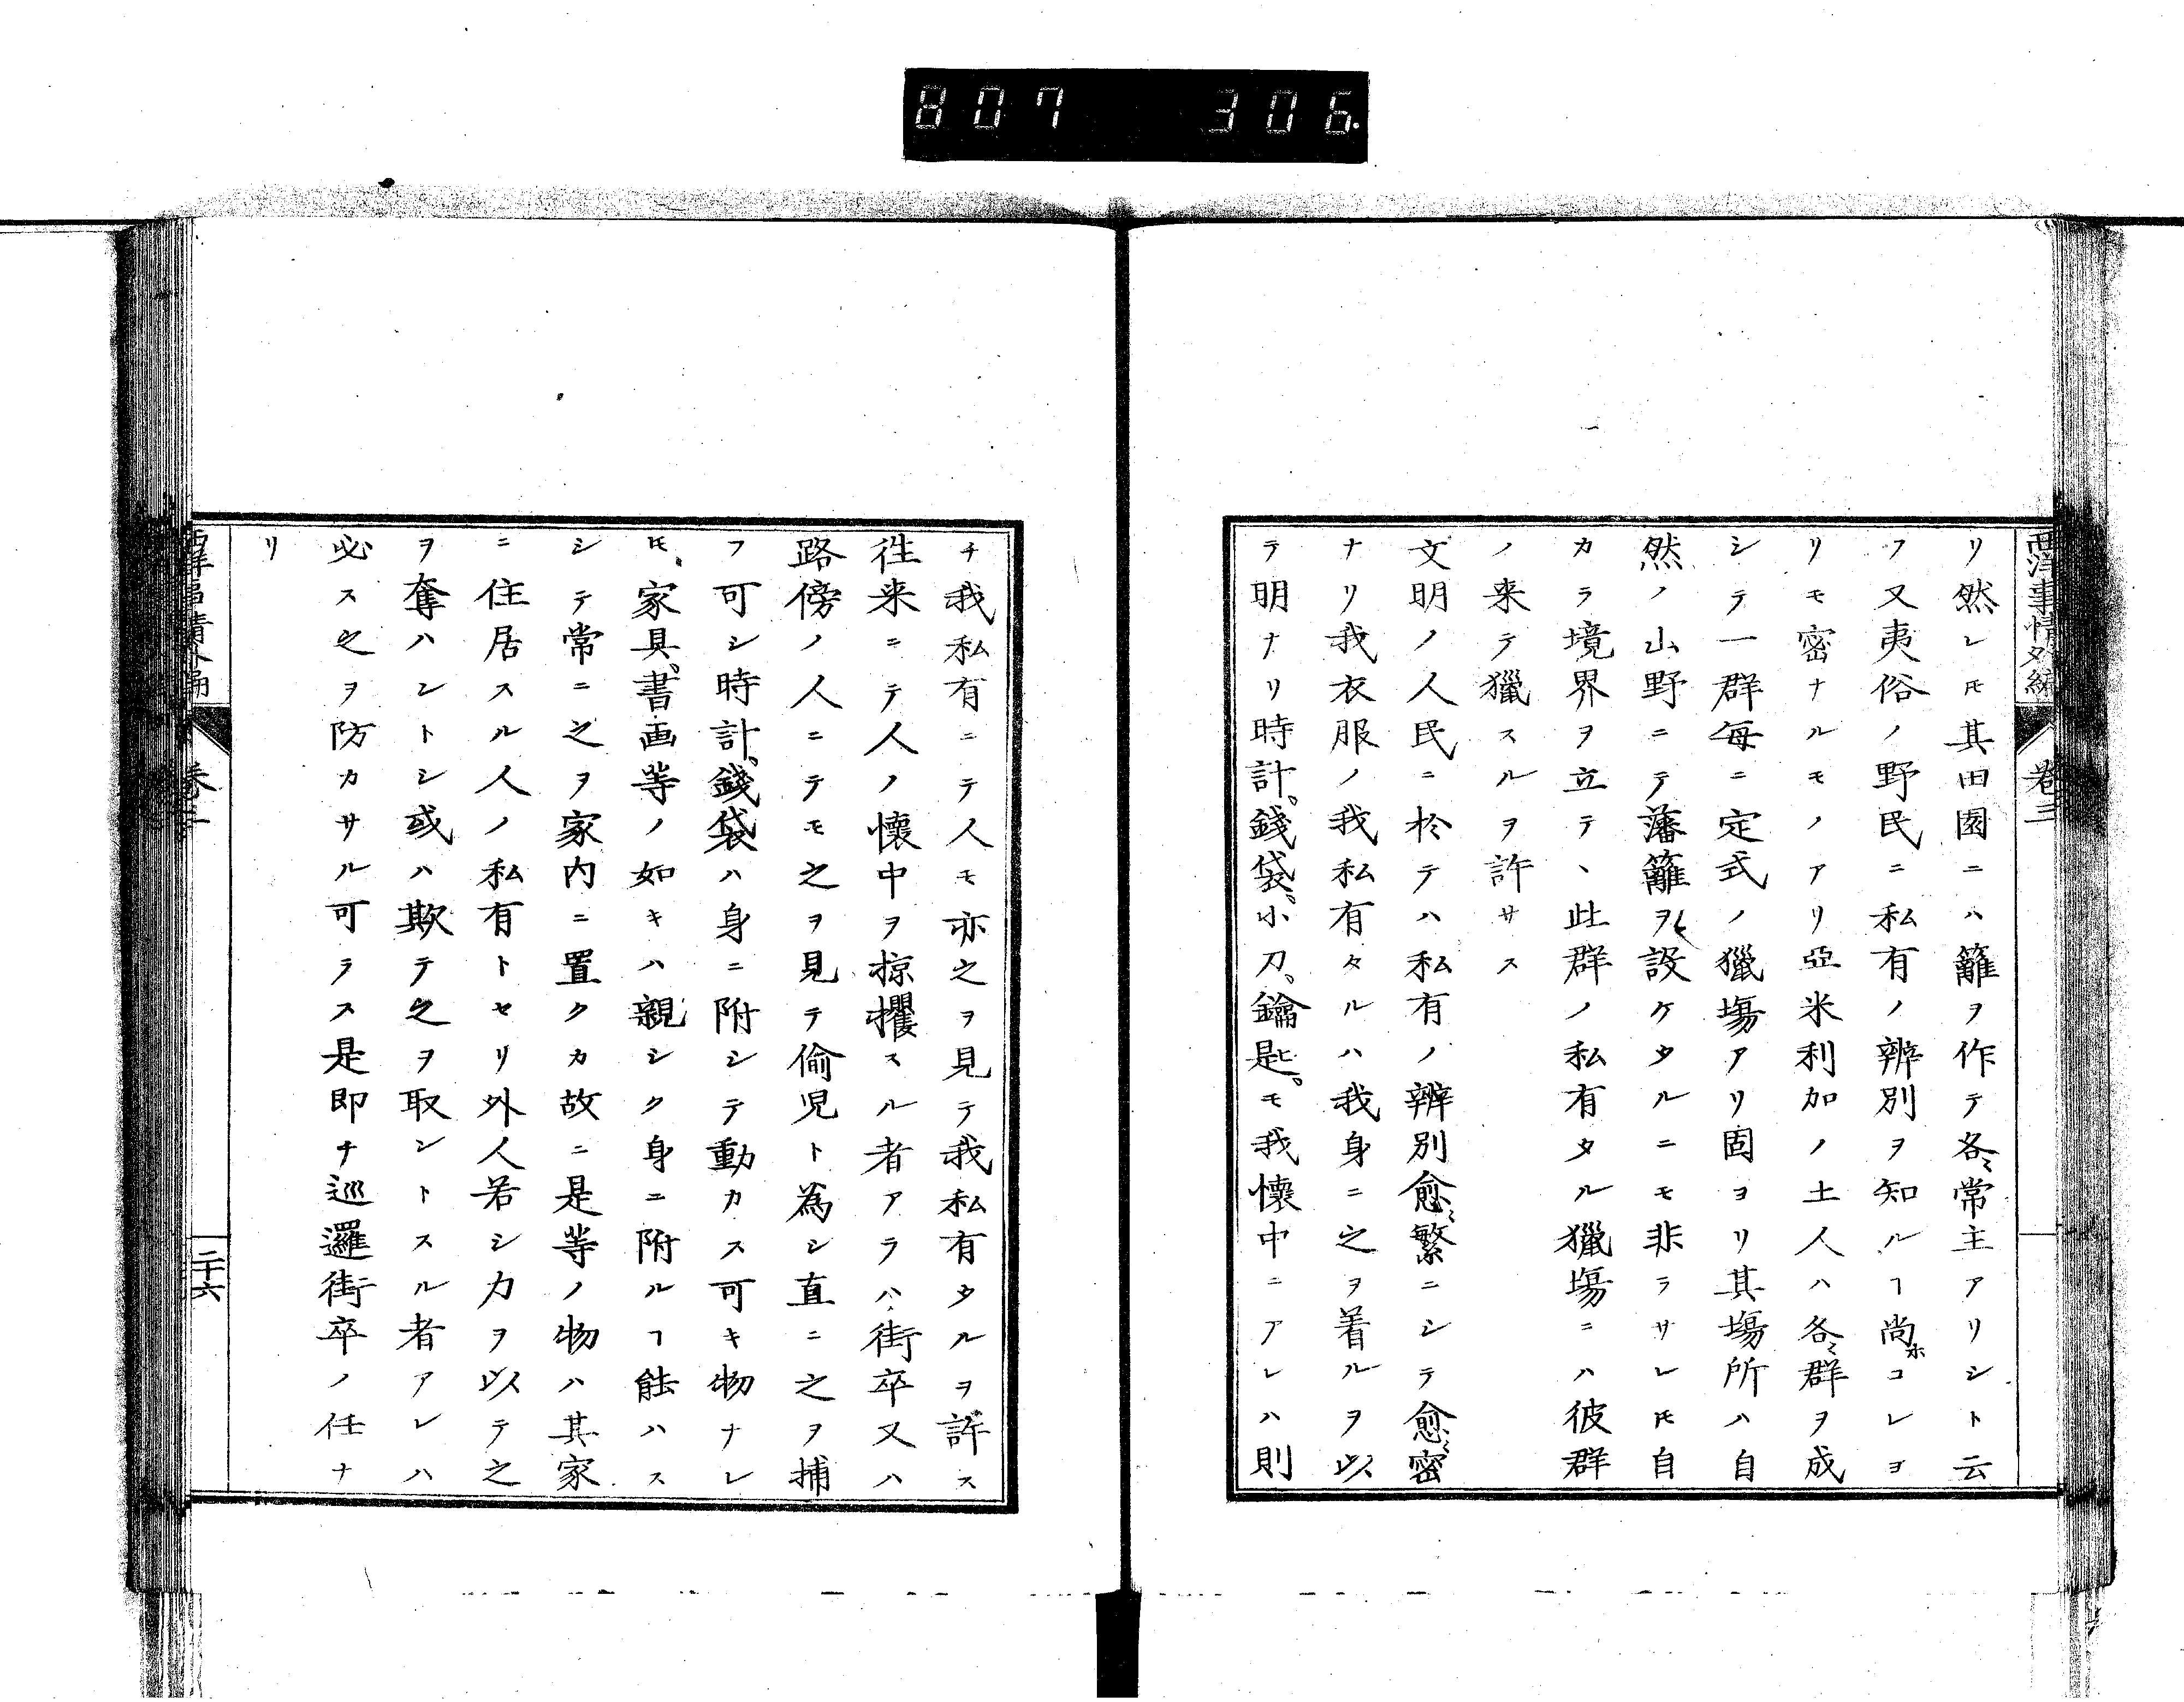 807 306.
西洋事情外編 卷三
リ然レ𪜈其田園ニハ籬ヲ作テ各〻常主アリシト云
フ又夷俗ノ野民ニ私有ノ辨別ヲ知ルヿ尚ホコレヨ
リモ密ナルモノアリ亞米利加ノ土人ハ各〻群ヲ成
シテ一群每ニ定式ノ獵塲アリ固ヨリ其塲所ハ自
然ノ山野ニテ藩籬ヲ設ケタルニモ非ラサレ𪜈自
カラ境界ヲ立テ、此群ノ私有タル獵塲ニハ彼群
ノ来テ獵スルヲ許サス
文明ノ人民ニ於テハ私有ノ辨別愈〻繁ニシテ愈〻密
ナリ我衣服ノ我私有タルハ我身ニ之ヲ着ルヲ以
テ明ナリ時計、錢袋、小刀、鑰匙、モ我懷中ニアレハ則
チ我私有ニテ人モ亦之ヲ見テ我私有タルヲ許ス
徃来ニテ人ノ懷中ヲ掠攫スル者アラハ街卒又ハ
路傍ノ人ニテモ之ヲ見テ偷児ト為シ直ニ之ヲ捕
フ可シ時計、錢袋ハ身ニ附シテ動カス可キ物ナレ
𪜈、家具、書画等ノ如キハ親シク身ニ附ルヿ能ハス
シテ常ニ之ヲ家内ニ置クカ故ニ是等ノ物ハ其家
ニ住居スル人ノ私有トセリ外人若シ力ヲ以テ之
ヲ奪ハントシ或ハ欺テ之ヲ取ントスル者アレハ
必ス之ヲ防カサル可ラス是即チ巡邏街卒ノ任ナ
リ
西洋事情外編 卷三 二十六